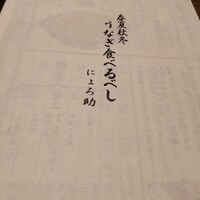 春夏秋冬
うなぎ食べるべし
にょろ助